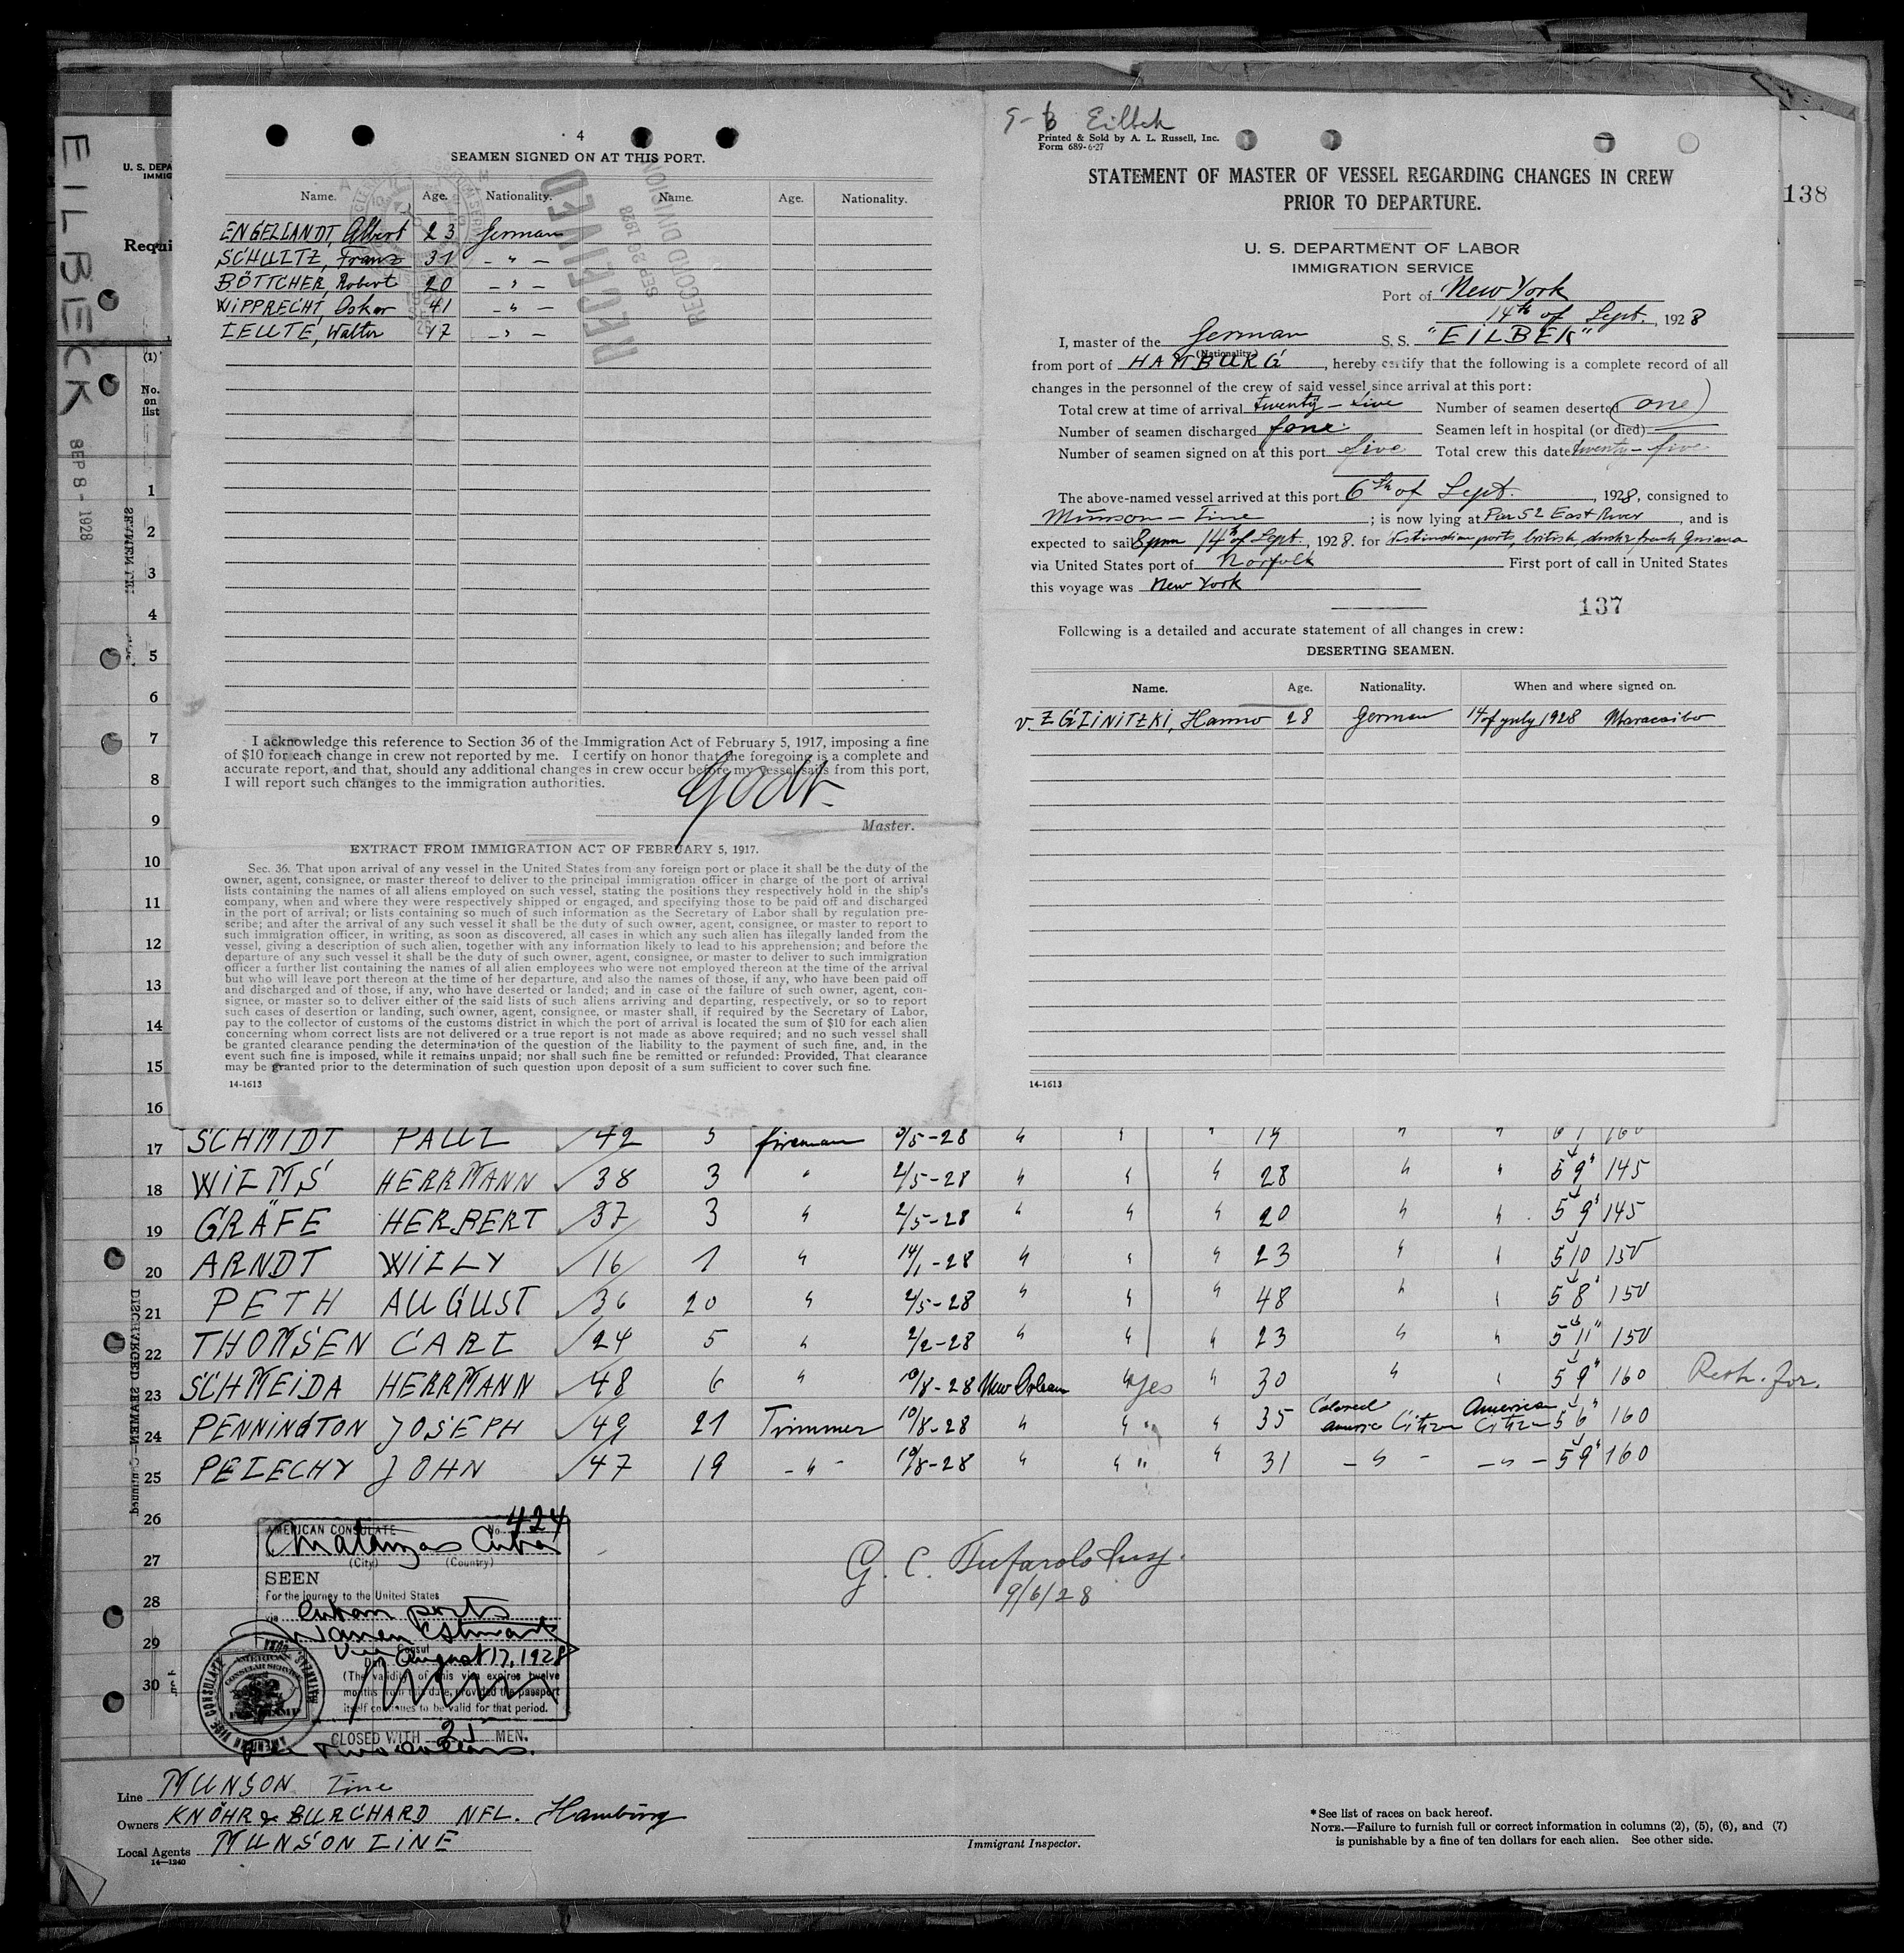 EILBECK
SEP 8 - 1928
U. S. DEPA
IMMIG
Requi
138
4
SEAMEN SIGNED ON AT THIS PORT.
Name. Age. Nationality. Name. Age. Nationality.
ENGELLANDT, Albert 23 German
SCHULTZ, Franz 31 - " -
BÖTTCHER, Robert 20 - " -
WIPPRECHT, Oskar 41 - " -
LEUTE, Walter 17 - " -
RECEIVED
SEP 26 1928
RECORD DIVISION
I acknowledge this reference to Section 36 of the Immigration Act of February 5, 1917, imposing a fine
of $10 for each change in crew not reported by me. I certify on honor that the foregoing is a complete and
accurate report, and that, should any additional changes in crew occur before my vessel sails from this port,
I will report such changes to the immigration authorities.
Godt.
Master.
EXTRACT FROM IMMIGRATION ACT OF FEBRUARY 5, 1917.
Sec. 36. That upon arrival of any vessel in the United States from any foreign port or place it shall be the duty of the
owner, agent, consignee, or master thereof to deliver to the principal immigration officer in charge of the port of arrival
lists containing the names of all aliens employed on such vessel, stating the positions they respectively hold in the ship's
company, when and where they were respectively shipped or engaged, and specifying those to be paid off and discharged
in the port of arrival; or lists containing so much of such information as the Secretary of Labor shall by regulation pre-
scribe; and after the arrival of any such vessel it shall be the duty of such owner, agent, consignee, or master to report to
such immigration officer, in writing, as soon as discovered, all cases in which any such alien has illegally landed from the
vessel, giving a description of such alien, together with any information likely to lead to his apprehension; and before the
departure of any such vessel it shall be the duty of such owner, agent, consignee, or master to deliver to such immigration
officer a further list containing the names of all alien employees who were not employed thereon at the time of the arrival
but who will leave port thereon at the time of her departure, and also the names of those, if any, who have been paid off
and discharged and of those, if any, who have deserted or landed; and in case of the failure of such owner, agent, con-
signee, or master so to deliver either of the said lists of such aliens arriving and departing, respectively, or so to report
such cases of desertion or landing, such owner, agent, consignee, or master shall, if required by the Secretary of Labor,
pay to the collector of customs of the customs district in which the port of arrival is located the sum of $10 for each alien
concerning whom correct lists are not delivered or a true report is not made as above required; and no such vessel shall
be granted clearance pending the determination of the question of the liability to the payment of such fine, and, in the
event such fine is imposed, while it remains unpaid; nor shall such fine be remitted or refunded: Provided, That clearance
may be granted prior to the determination of such question upon deposit of a sum sufficient to cover such fine.
14-1613
Eilbek
Printed & Sold by A. L. Russell, Inc.
Form 689-6-27
STATEMENT OF MASTER OF VESSEL REGARDING CHANGES IN CREW
PRIOR TO DEPARTURE.
U. S. DEPARTMENT OF LABOR
IMMIGRATION SERVICE
Port of New York
14th of Sept., 1928
I, master of the German S. S. "EILBEK"
(Nationality)
from port of HAMBURG, hereby certify that the following is a complete record of all
changes in the personnel of the crew of said vessel since arrival at this port:
Total crew at time of arrival twenty-five Number of seamen deserted one
Number of seamen discharged Seamen left in hospital (or died)
Number of seamen signed on at this port five Total crew this date twenty-five
The above-named vessel arrived at this port 6th of Sept., 1928, consigned to
Munson-Line; is now lying at Pier 52 East River, and is
expected to sail 8pm 14th of Sept., 1928. for Westindian ports, british, dutch & french Guiana
via United States port of Norfolk First port of call in United States
this voyage was New York
137
Following is a detailed and accurate statement of all changes in crew:
DESERTING SEAMEN.
Name. Age. Nationality. When and where signed on.
v. ZGLINITZKI, Hanno 28 German 14 of july 1928 Maracaibo
14-1613
(1)
No.
on
list
1
2
3
4
5
6
7
8
9
10
11
12
13
14
15
16
17 SCHMIDT PAUL 42 5 fireman 2/5-28 " " " 19 " "
18 WILMS HERRMANN 38 3 " 2/5-28 " " " 28 " " 5 9 145
19 GRÄFE HERBERT 37 3 " 2/5-28 " " " 20 " " 5 9 145
20 ARNDT WILLY 16 1 " 14/1-28 " " " 23 " " 5 10 150
21 PETH AUGUST 36 20 " 2/5-28 " " " 48 " " 5 8 150
22 THOMSEN CARL 24 5 " 2/2-28 " " " 23 " " 5 11 150
23 SCHMEIDA HERRMANN 48 6 " 10/8-28 New Orleans " yes " 30 " " 5 9 160
24 PENNINGTON JOSEPH 49 21 Trimmer 10/8-28 " " " " 35 Colored Americ Citizen American Citizen 5 6 160
25 PELECHY JOHN 47 19 - " - 10/8-28 " " " " 31 - " - - " - 5 9 160
26
27
28
29
30
DISCHARGED SEAMEN—Continued
AMERICAN CONSULATE No. 424
Matanzas Cuba
(City) (Country)
SEEN
For the journey to the United States
via Cuban ports
Vice Consul
Date August 17, 1928
(The validity of this visa expires twelve
months from this date, provided the passport
itself continues to be valid for that period.
CLOSED WITH 25 MEN.
Fee two dollars.
AMERICAN VICE CONSULATE MATANZAS
AMERICAN CONSULAR SERVICE
G. C. Tufarolo Insp.
9/6/28
Line MUNSON Line
Owners KNÖHR & BURCHARD NFL. Hamburg
Local Agents MUNSON LINE
14—1240
Immigrant Inspector.
* See list of races on back hereof.
NOTE.—Failure to furnish full or correct information in columns (2), (5), (6), and (7)
is punishable by a fine of ten dollars for each alien. See other side.